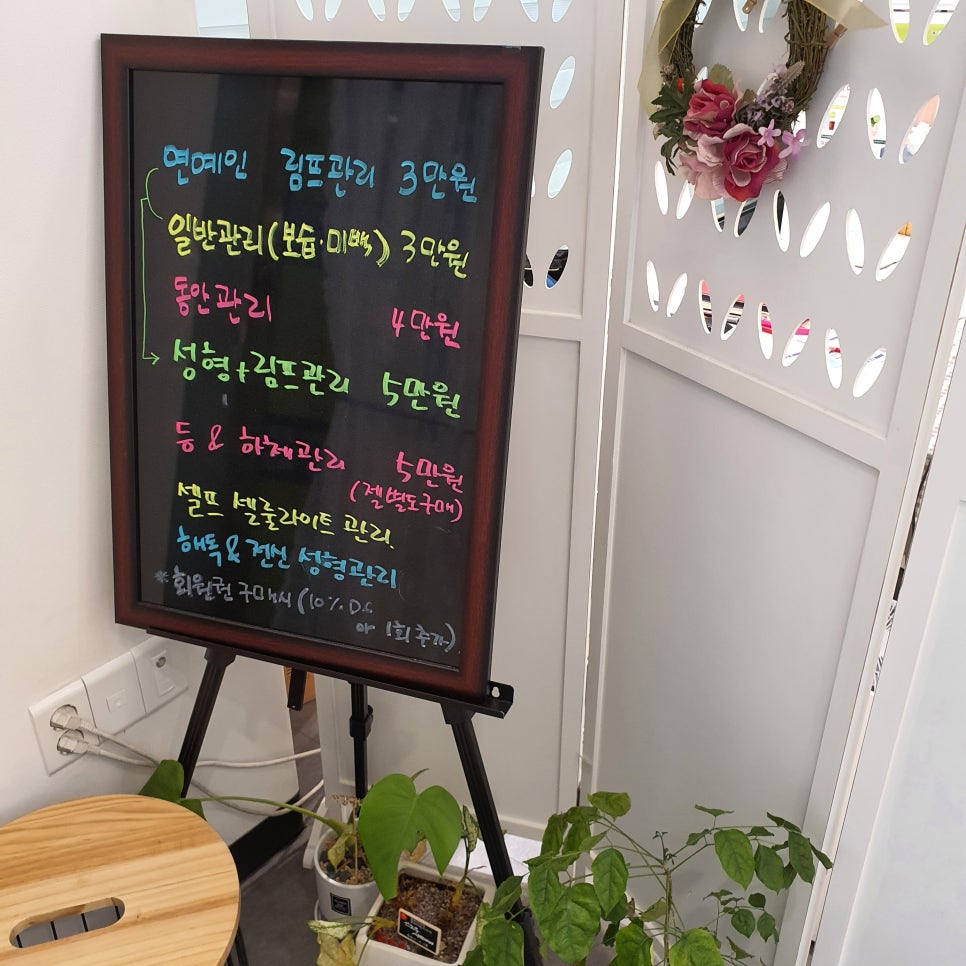 연예인 림프관리 3만원
일반관리(보습·미백) 3만원
동안관리 4만원
성형+림프관리 5만원
등 & 하체관리 5만원
(젤별도구매)
셀프 셀룰라이트 관리.
해독 & 전신 성형관리
※회원권 구매시 (10% D.C
or 1회 추가)